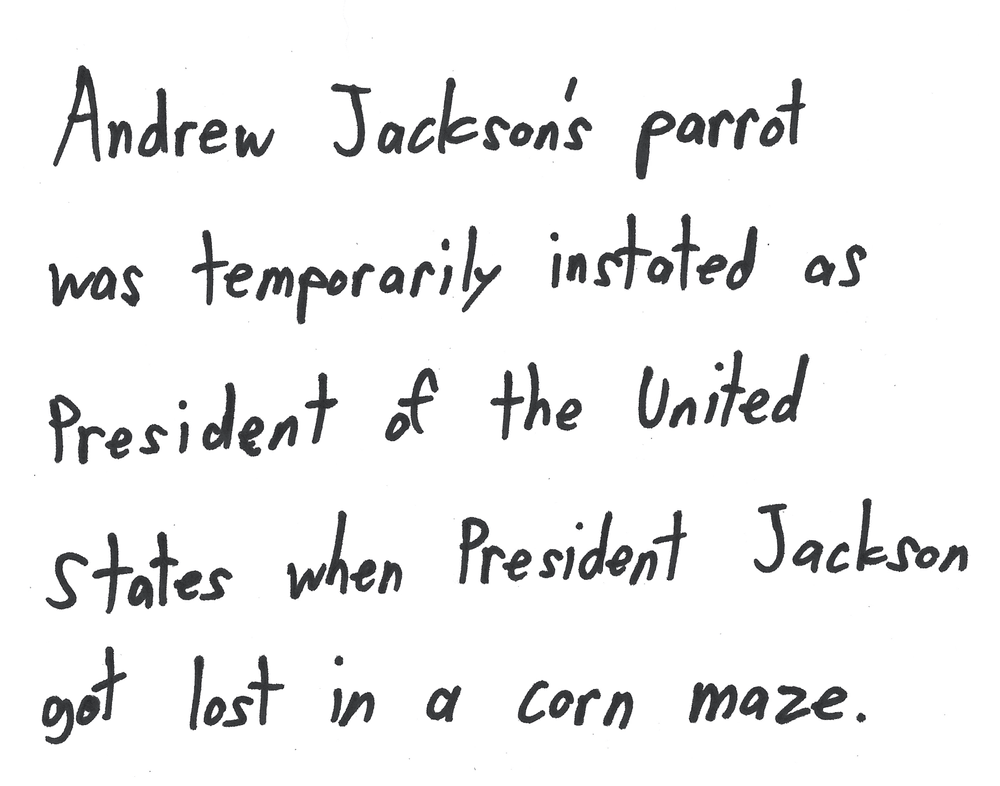 Andrew Jackson's parrot
was temporarily instated as
President of the United
States when President Jackson
got lost in a corn maze.